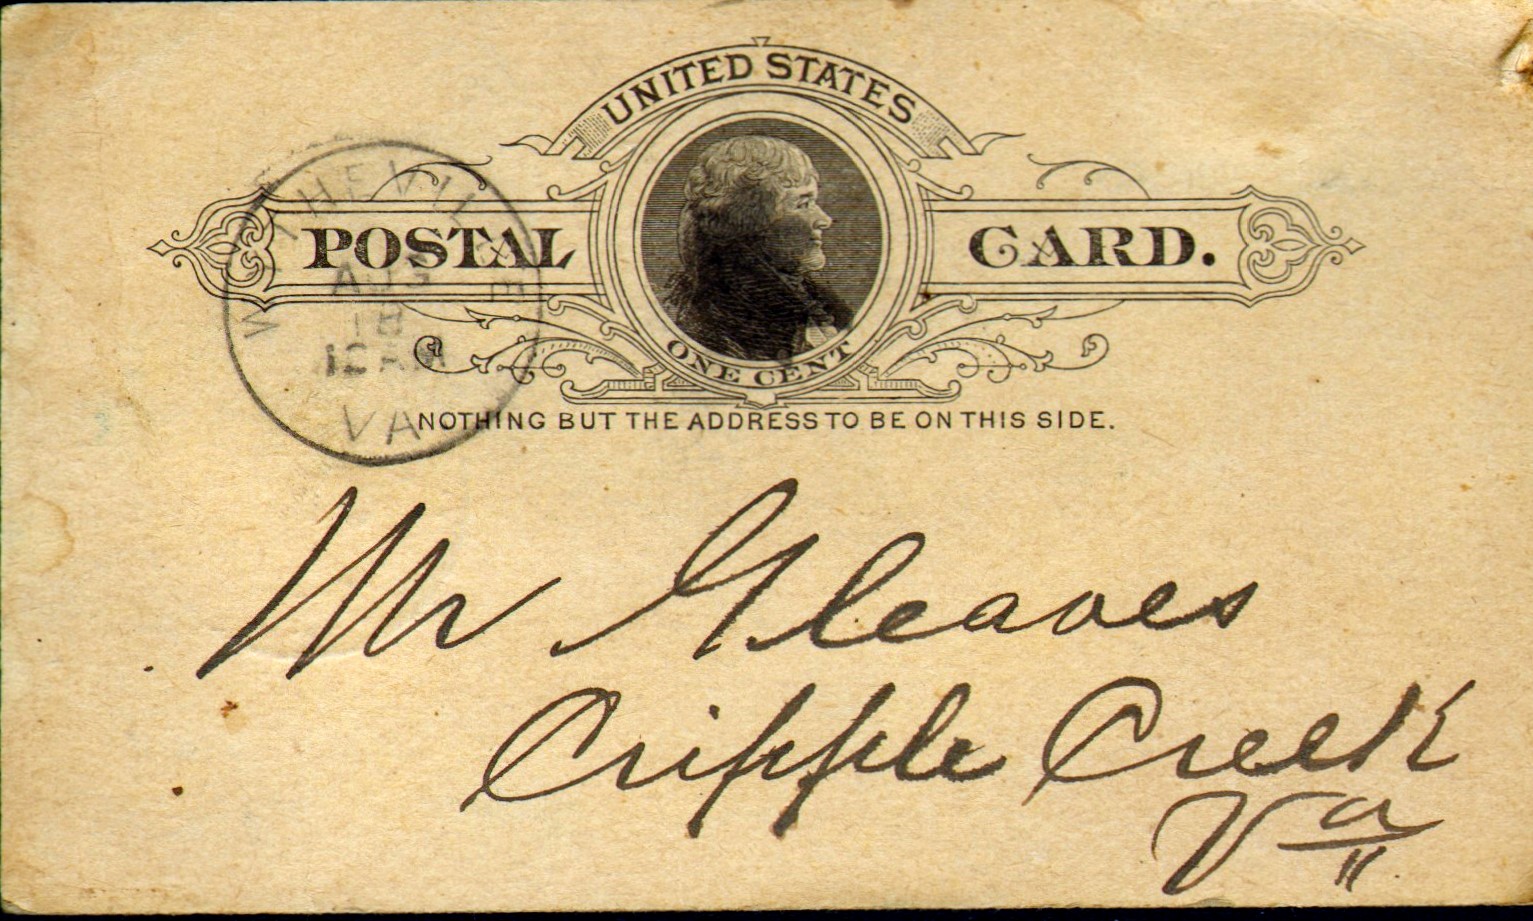 UNITED STATES
POSTAL CARD.
ONE CENT
NOTHING BUT THE ADDRESS TO BE ON THIS SIDE.
WYTHEVILLE
AUG
18
12 AM
VA
Mr Gleaves
Cripple Creek
Va